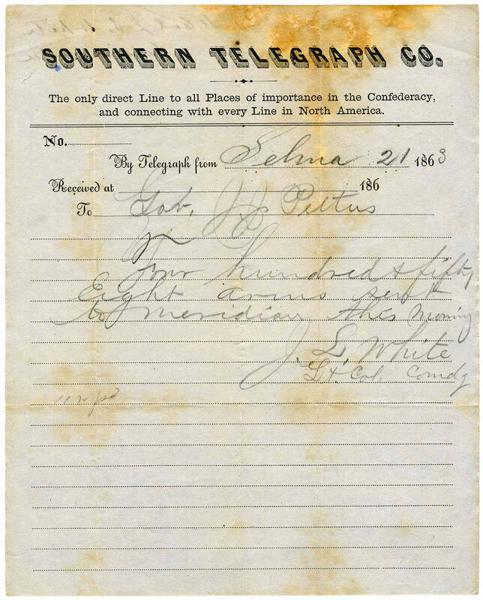 SOUTHERN TELEGRAPH CO.
The only direct Line to all Places of importance in the Confederacy,
and connecting with every Line in North America.
No.
By Telegraph from Selma 21 1863
Received at 186
To Gov. J J Pettus
Four hundred & fifty
Eight arms sent
to meridian this morning
J. L. White
Lt. Col. Comdg